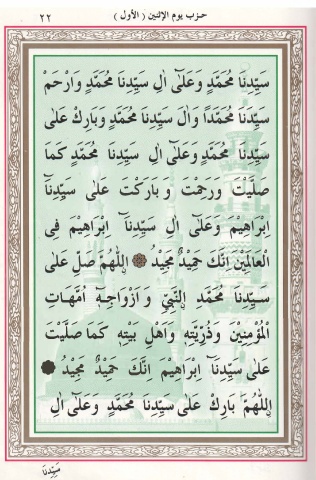 حزب يوم الإثنين ( الأول )
٢٢
سَيِّدِنَا مُحَمَّدٍ وَعَلَىٰ اٰلِ سَيِّدِنَا مُحَمَّدٍ وَارْحَمْ
سَيِّدَنَا مُحَمَّدًا وَاٰلَ سَيِّدِنَا مُحَمَّدٍ وَبَارِكْ عَلَىٰ
سَيِّدِنَا مُحَمَّدٍ وَعَلَىٰٓ اٰلِ سَيِّدِنَا مُحَمَّدٍ كَمَا
صَلَّيْتَ وَرَحِمْتَ وَبَارَكْتَ عَلَىٰ سَيِّدِنَآ
اِبْرَاهِيمَ وَعَلَىٰٓ اٰلِ سَيِّدِنَآ اِبْرَاهِيمَ فِى
الْعَالَمِينَ اِنَّكَ حَمِيدٌ مَجِيدٌ ۞ اَللّٰهُمَّ صَلِّ عَلَىٰ
سَيِّدِنَا مُحَمَّدٍ النَّبِيِّ وَاَزْوَاجِهِٓ اُمَّهَاتِ
الْمُؤْمِنِينَ وَذُرِّيَّتِهِ وَاَهْلِ بَيْتِهِ كَمَا صَلَّيْتَ
عَلَىٰ سَيِّدِنَآ اِبْرَاهِيمَ اِنَّكَ حَمِيدٌ مَجِيدٌ ۞
اَللّٰهُمَّ بَارِكْ عَلَىٰ سَيِّدِنَا مُحَمَّدٍ وَعَلَىٰٓ اٰلِ
سَيِّدِنَا